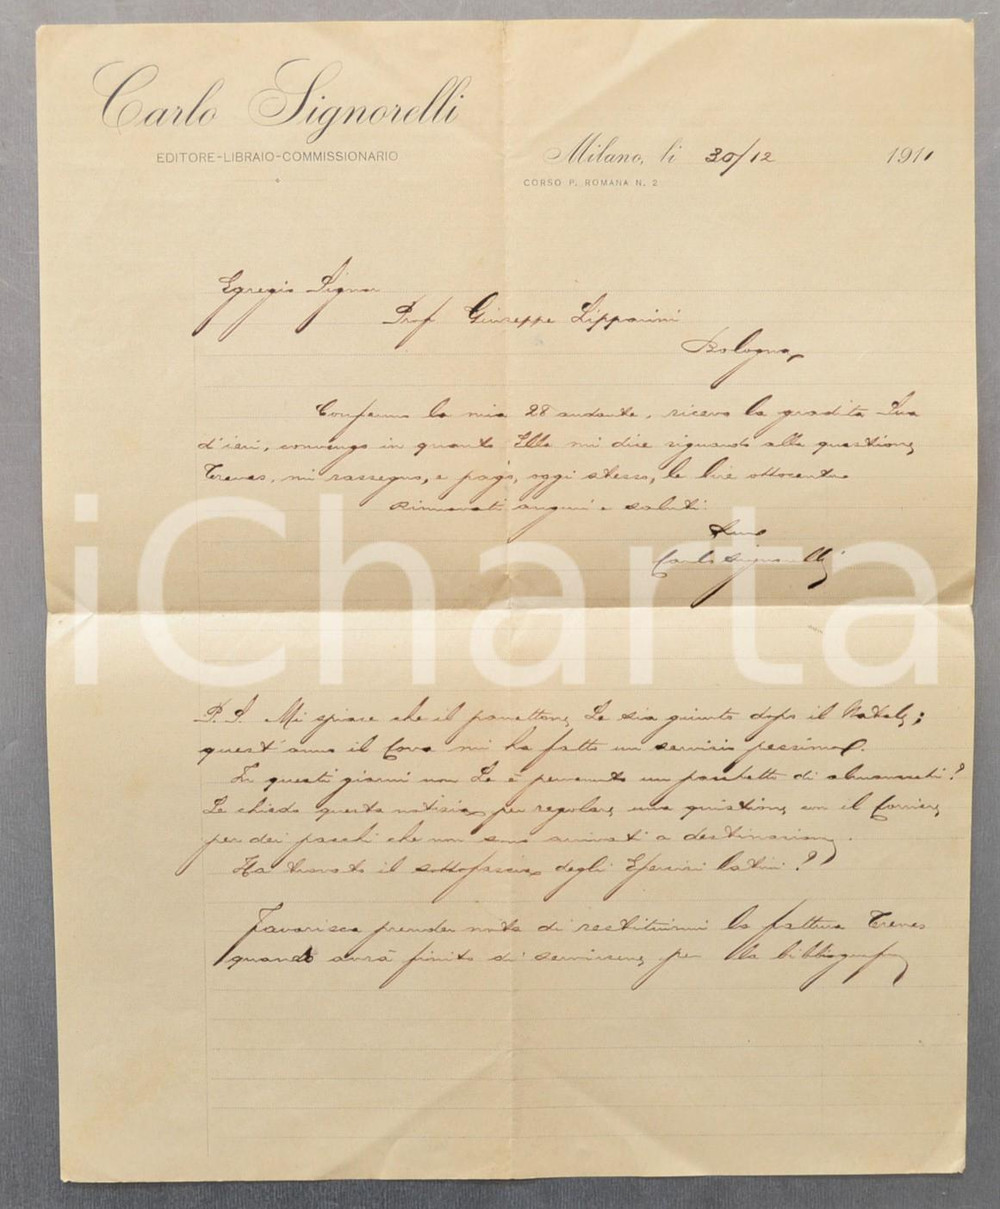 Carlo Signorelli
EDITORE-LIBRAIO-COMMISSIONARIO
Milano, li 30/12 1911
CORSO P. ROMANA N. 2
Egregio Signor
Prof Giuseppe Lipparini
Bologna
Confermo la mia 28 andante, ricevo la gradita Sua
d'ieri, convengo in quanto Ella mi dice riguardo alla questione
Treves, mi rassegno, e pago, oggi stesso, le lire ottocento
Rinnovati auguri e saluti.
Suo
Carlo Signorelli
iCharta
P. S. Mi spiace che il panettone Le sia giunto dopo il Natale;
quest'anno il Cova mi ha fatto un servizio pessimo.
In questi giorni non Le è pervenuto un pacchetto di almanacchi?
Le chiedo questa notizia per regolare una quistione con il Corriere
per dei pacchi che non sono arrivati a destinazione.
Ha trovato il sottofascia degli Esercizi latini?
Favorisca prender nota di restituirmi la fattura Treves
quando avrà finito di servirsene per la bibliografia